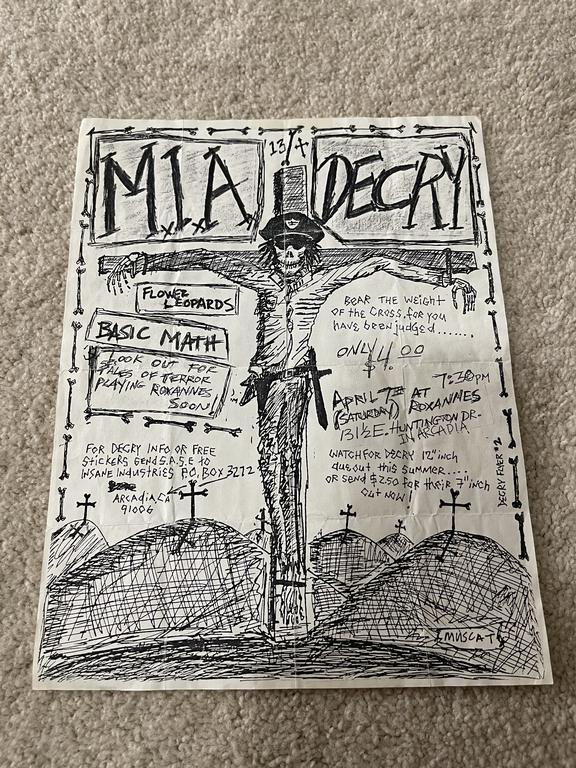 M.I.A.
13
DECRY
FLOWER
LEOPARDS
BASIC MATH
LOOK OUT FOR
TALES OF TERROR
PLAYING ROXANNES
SOON!
BEAR THE WEIGHT
OF THE CROSS, FOR YOU
HAVE BEEN JUDGED......
ONLY
$4.00
7:30PM
APRIL 7TH AT
(SATURDAY) ROXANNES
131½ E. HUNTINGTON DR.
IN ARCADIA
FOR DECRY INFO OR FREE
STICKERS SEND S.A.S.E TO
INSANE INDUSTRIES P.O. BOX 3272
ARCADIA, CA
91006
WATCH FOR DECRY 12"INCH
due out this SUMMER....
OR SEND $2.50 FOR THEIR 7"INCH
OUT NOW!
DECRY FLYER #2
MUSCAT